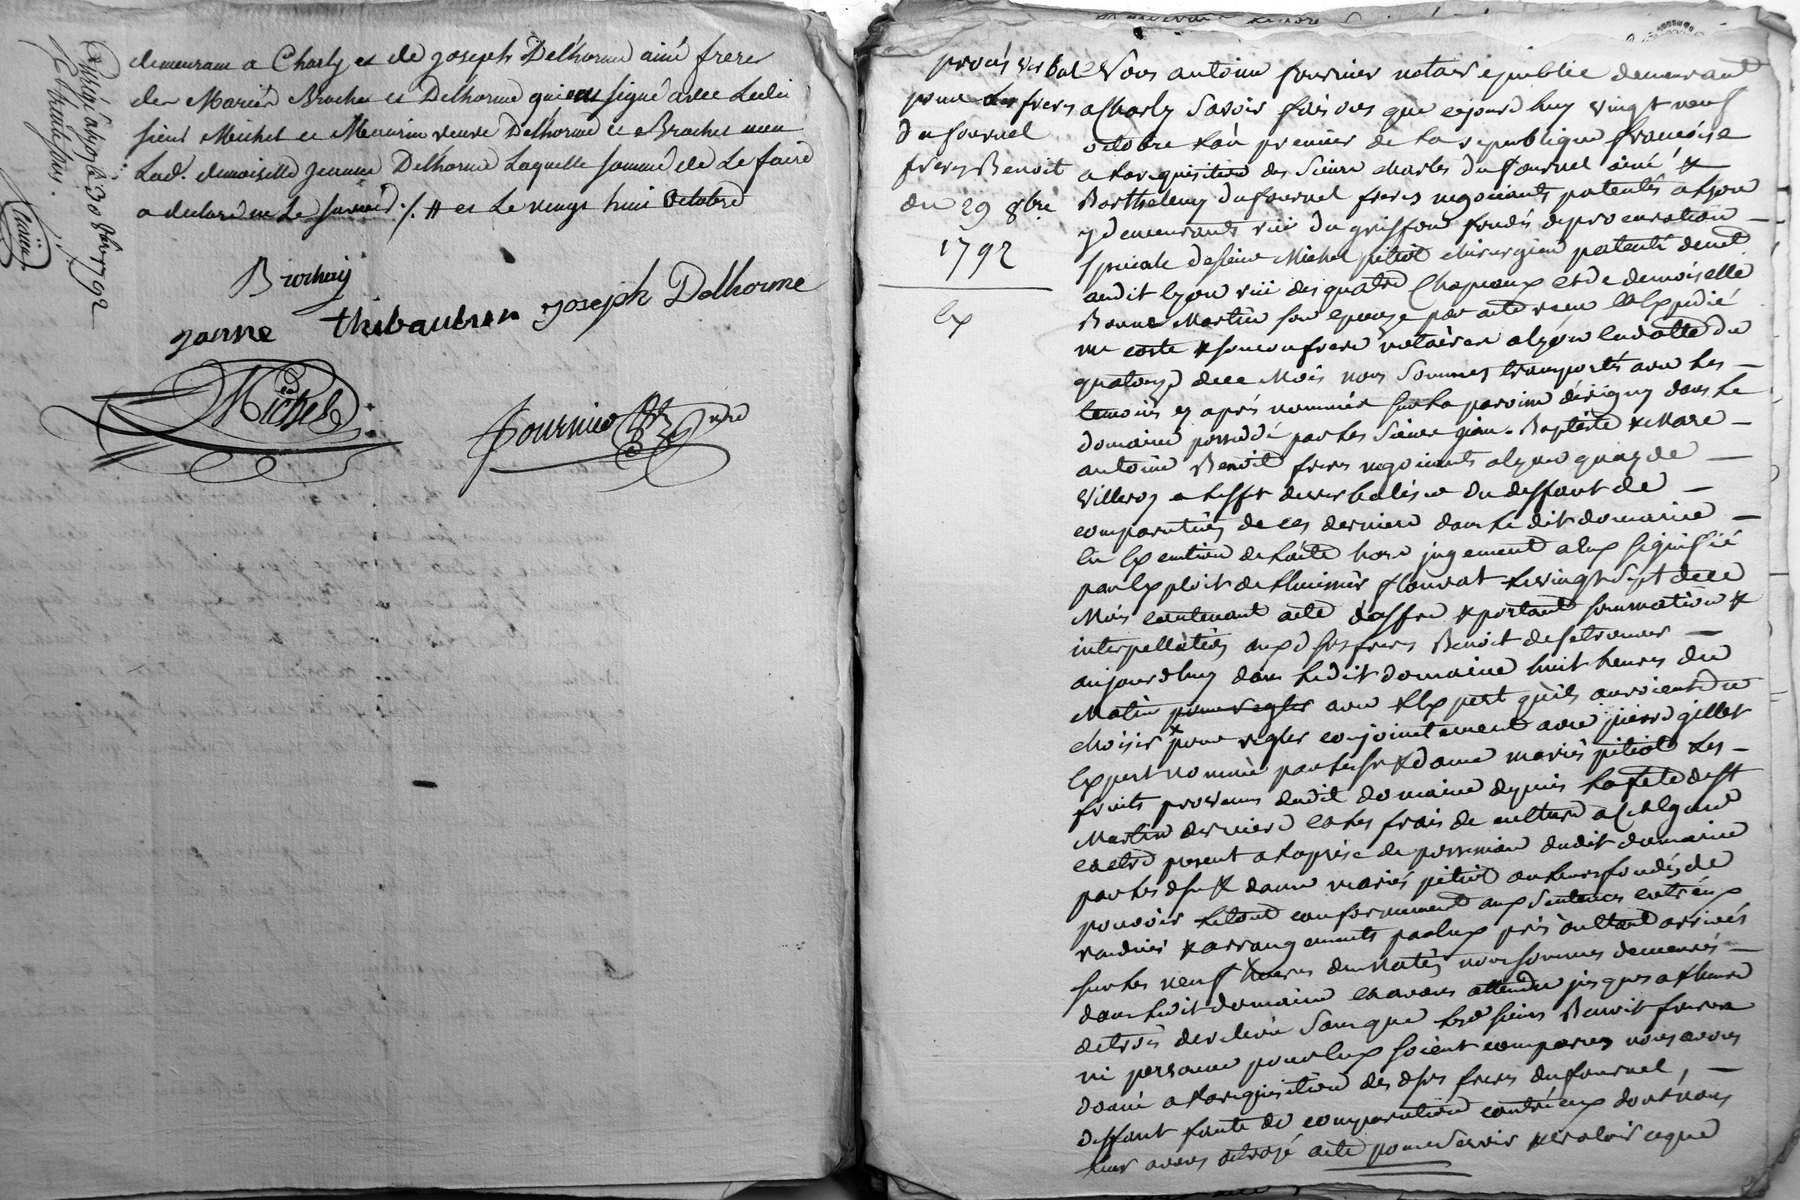 demeurant a Charly et de joseph Delhorme ainé frere
des Mariés Brochet et Delhorme qui ont signé avec Ledit
sieur Michel et Mennrin veuve Delhorme et Brochet non
Lad. demoiselle jeanne Delhorme Laquelle sommé de Le faire
a declaré ne Le savoir ./. et Le vingt huit Octobre
Brochay
janne thibaudier joseph Delhorme
Michel
Fournier nre
procés verbal
pour les freres
Dufournel
freres Benoit
du 29 8bre
1792
ex
Nous antoine fournier notaire publie demeurant
a Charly Savoir faisons que cejourd'huy vingt neuf
octobre L'an premier de La republique francoise
a La requisition des Sieurs charles Dufournel ainé &
Barthelemy Dufournel freres negociants patentés a Lyon
y demeurants rue du griffon fondés de procuration
speciale de sieur Michel pitiot chirurgien patenté demt
audit Lyon rue des quatre Chapeaux et de demoiselle
Bonne Martin son epouze par acte recu et Expedié
me coste & son confrere notaires a Lyon en datte du
quatorze de ce Mois nous Sommes transportés avec Les
temoins cy aprés nommés sur La paroisse d'irigny dans Le
domaine possedé par Les Sieurs jean-Baptiste & Marc
antoine Benoit freres negociants a Lyon quay de
Villeroy a L'effet de verbaliser du deffaut de
comparution de ces derniers dans Le dit domaine
En Execution de L'acte hors jugement a Eux signifié
par Exploit de L'huissier flourat Le vingt Sept de ce
Mois contenant acte d'offre & portant sommation &
interpellation auxd. srs freres Benoit de se trouver
aujourd'huy dans Ledit domaine huit heures du
Matin pour regler avec L'Expert qu'ils auroient du
choisir pour regler conjointement avec pierre gillet
Expert nommé par Les sr & dame mariés pitiot Les
fruits provenus dudit domaine depuis La fete de st
Martin derniere et Les frais de culture
present a La prise de possession dudit domaine
par Les d. sr & dame mariés pitiot ou Leurs fondés de
pouvoir Le tout conformement aux Sentences contr'eux
rendues & arrangements par Eux pris ou étant arrivés
sur Les neuf heures du Matin nous sommes demeurés
dans Ledit domaine et avons attendu jusques a L'heure
de trois de relevée Sans que Lesd. sieurs Benoit freres
ni personne pour Eux soient comparus nous avons
donné a La requisition des d. srs freres Dufournel,
deffaut faute de comparution contr'eux dont nous
Leur avons octroyé acte pour servir & valoir ce que